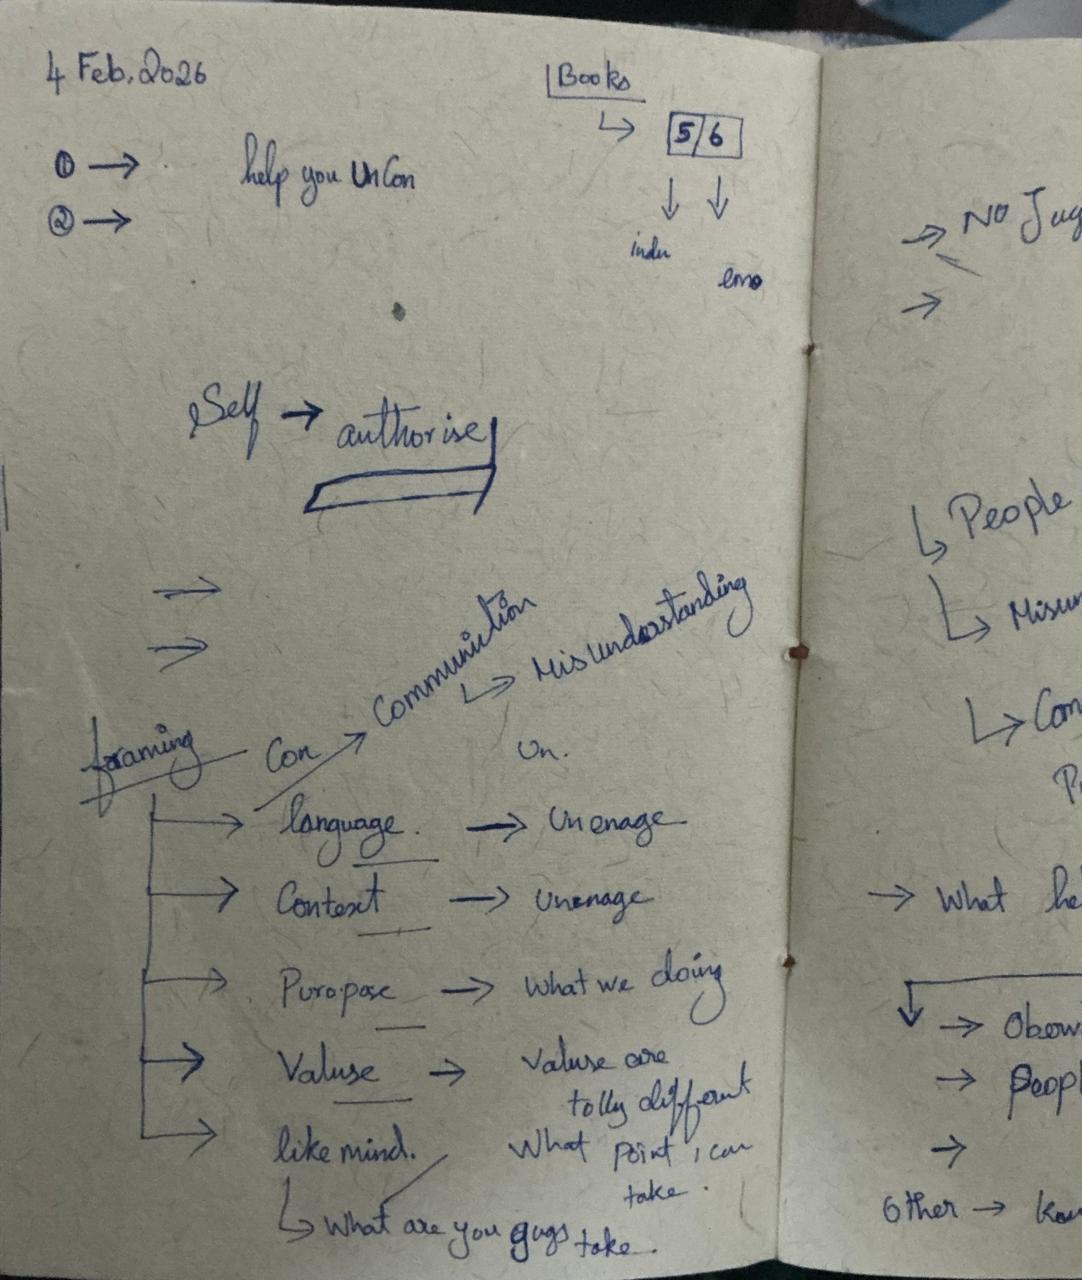 4 Feb, 2026
Books
5/6
① → help you UnCon
② →
indu
emo
Self → authorise
Communiction
↳ Misunderstanding
framing
Con
Un.
language. → Unenage
Context → Unenage
Puropose → What we doing
Valuse → Valuse are
tolly different
like mind. What point, can
take.
↳ What are you guys take.
→ No Jug
→
↳ People
↳ Misun
↳ Com
→ What he
→ peopl
→
Other →